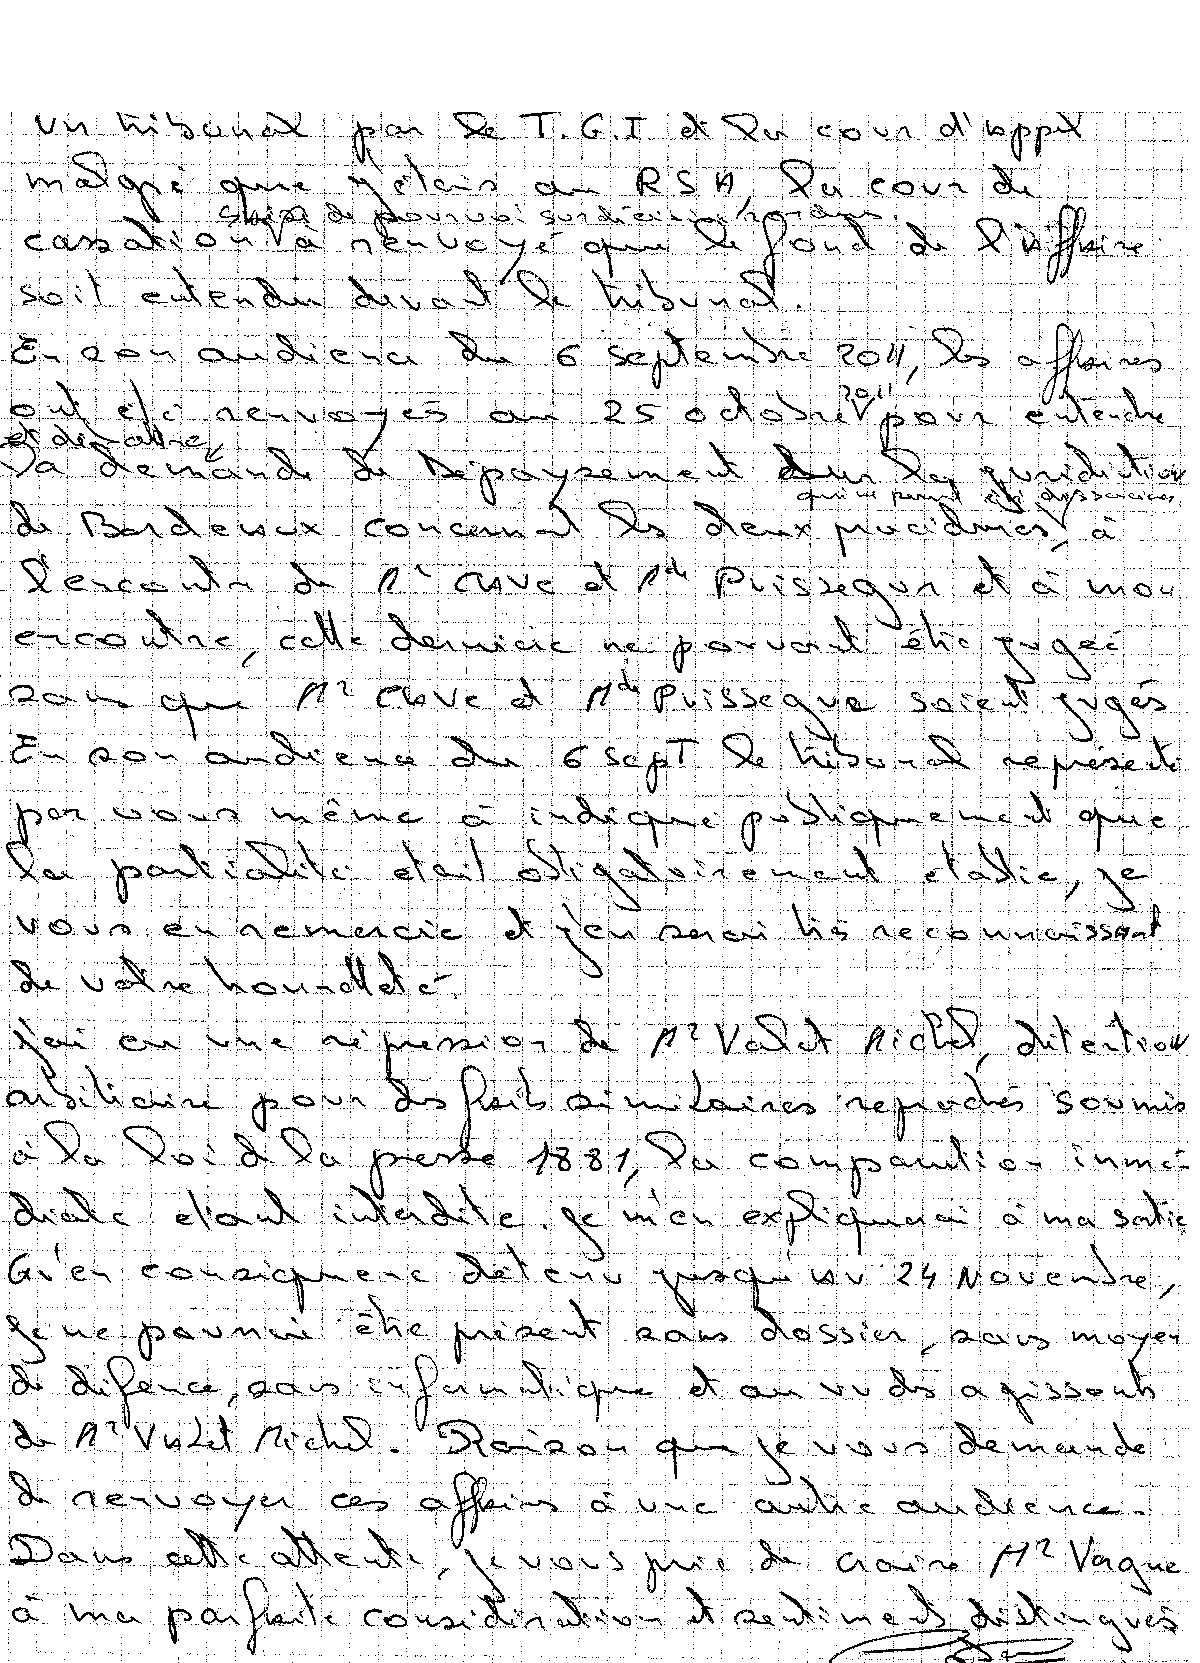 un tribunal par le T.G.I et la cour d'appel
malgré que j'étais au RSA, la cour de
saisie de pourvoi sur
cassation à renvoyé que le fond de l'affaire
soit entendu devant le tribunal.
En son audience du 6 septembre 2011, les affaires
2011
ont été renvoyés au 25 octobre pour entendre
et débattre,
la demande de Dépaysement la juridiction
qui ne peuvent être dissociées
de Bordeaux concernant les deux procédures, à
l'encontre de Mr CAVE et Mde Puissegur et à mon
encontre, cette dernière ne pouvant être jugée
sans que Mr CAVE et Mde Puissegur soient jugés
En son audience du 6 sept le tribunal représenté
par vous même à indiqué publiquement que
la partialité était obligatoirement établie, je
vous en remercie et j'en serai très reconnaissant
de votre honnêteté.
J'ai eu une répression de Mr Valet Michel, détention
arbitraire pour des faits similaires reprochés soumis
à la loi de la presse 1881, la comparution immé-
diate étant interdite. Je m'en expliquerai à ma sortie
Qu'en conséquence détenu jusqu'au 24 Novembre,
Je ne pourrai être présent sans dossier, sans moyen
de défence, sans informatique et au vu des agissements
de Mr Valet Michel. Raison que je vous demande
de renvoyer ces affaires à une autre audience.
Dans cette attente, je vous prie de croire Mr Vergne
à ma parfaite considération et sentiments distingués